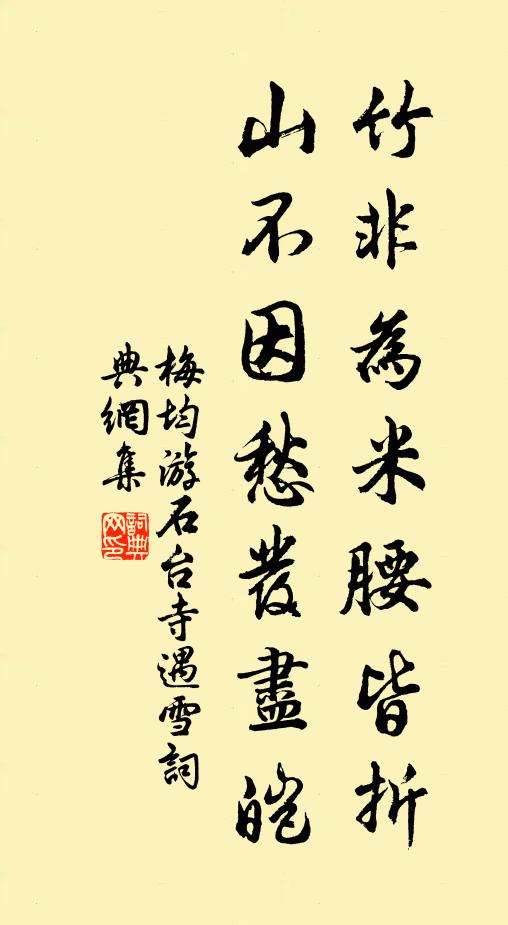 竹非為米腰皆折
山不因愁發盡皚
梅均游石台寺遇雪詞
典網集
詞典
网印